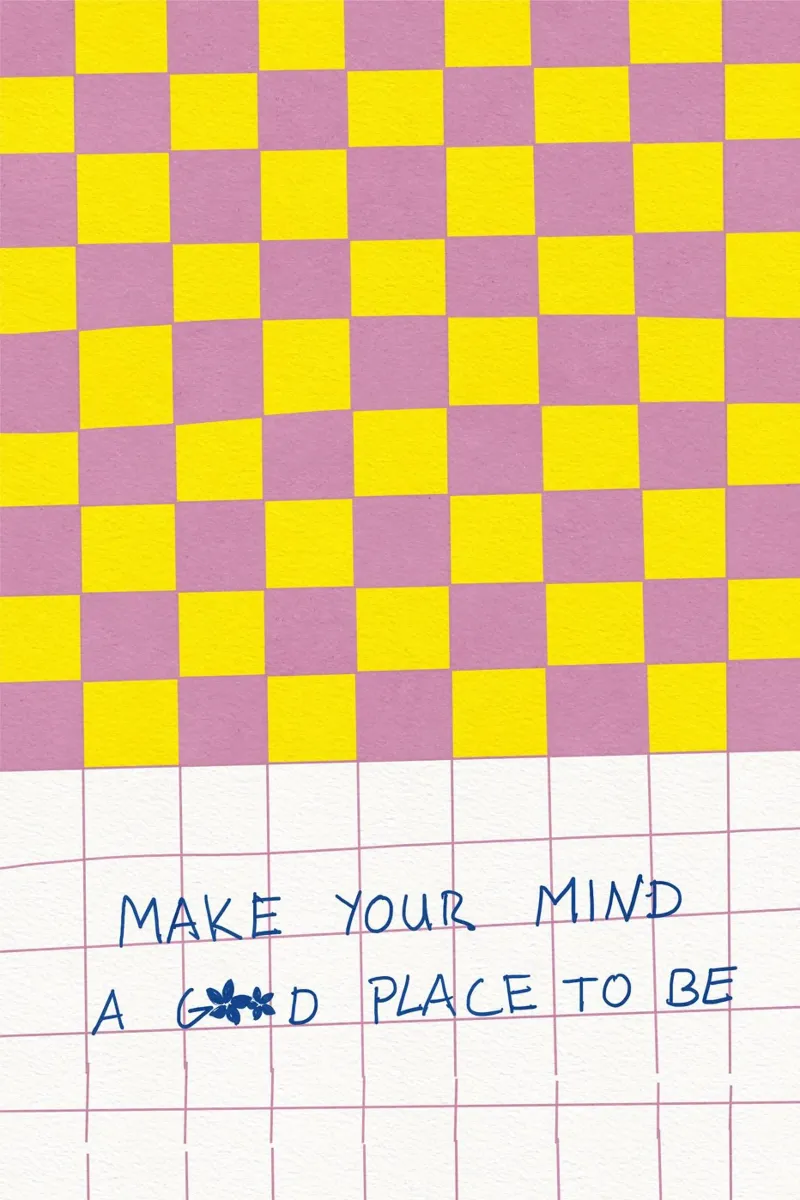 MAKE YOUR MIND
A GOOD PLACE TO BE